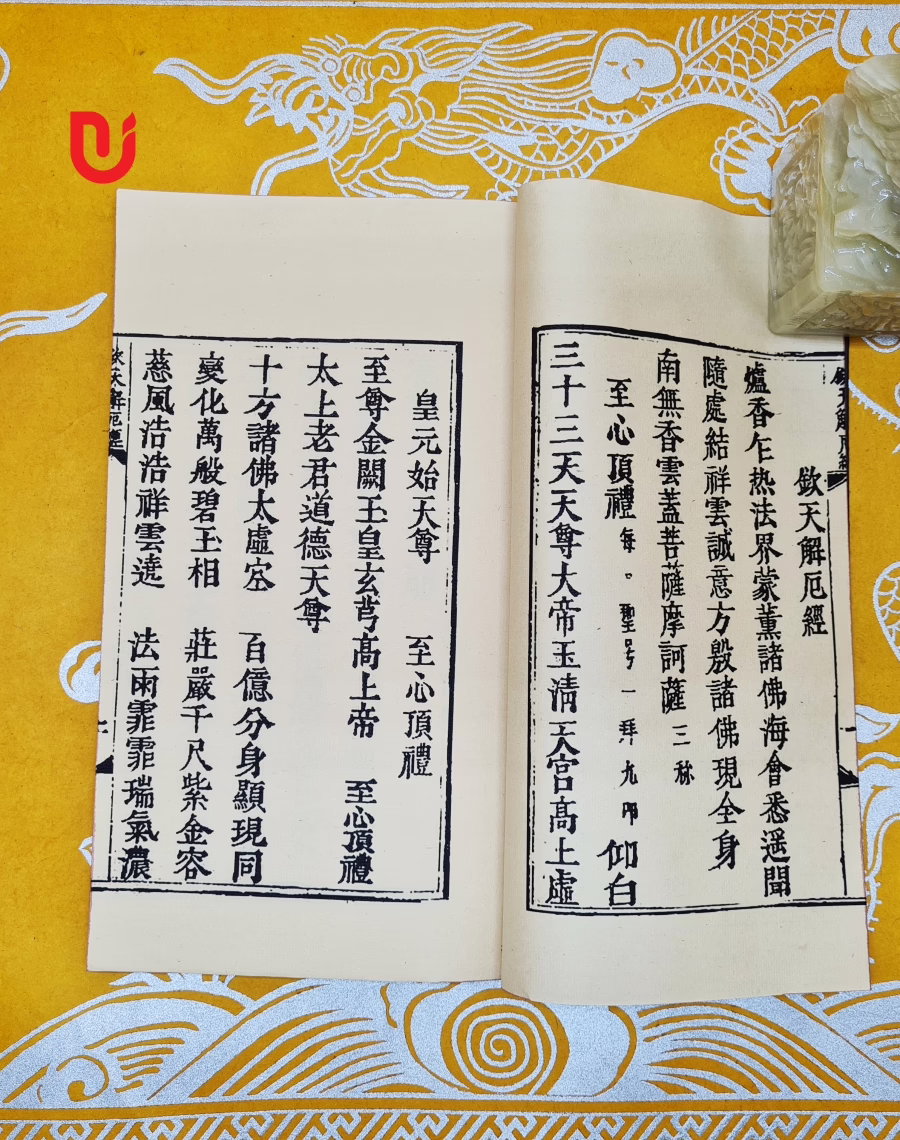 欽天解厄經
爐香乍热法界蒙薰諸佛海會悉遥聞
隨處結祥雲誠意方殷諸佛現全身
南無香雲蓋菩薩摩訶薩 三称
至心頂禮 每 聖号一拜九叩 仰白
三十三天天尊大帝玉淸天宮髙上虛
皇元始天尊 至心頂禮
至尊金闕玉皇玄芎髙上帝 至心頂禮
太上老君道德天尊
十方諸佛太虛空 百億分身顯現同
變化萬般碧玉相 莊嚴千尺紫金容
慈風浩浩祥雲遶 法雨霏霏瑞氣濃
欽天解厄經